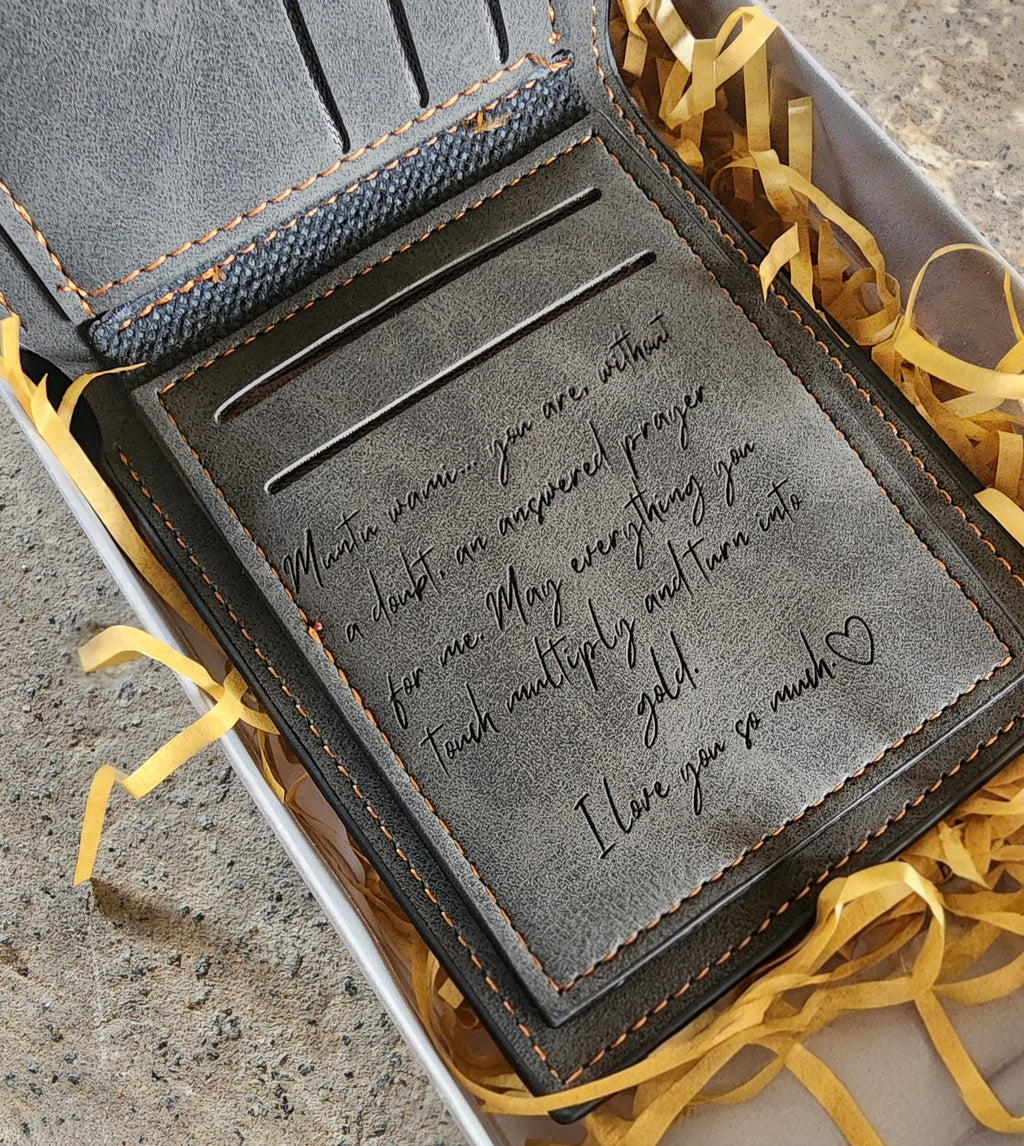 Muntu wami... you are, without
a doubt, an answered prayer
for me. May everything you
Touch multiply and Turn into
gold.
I love you so much.♡